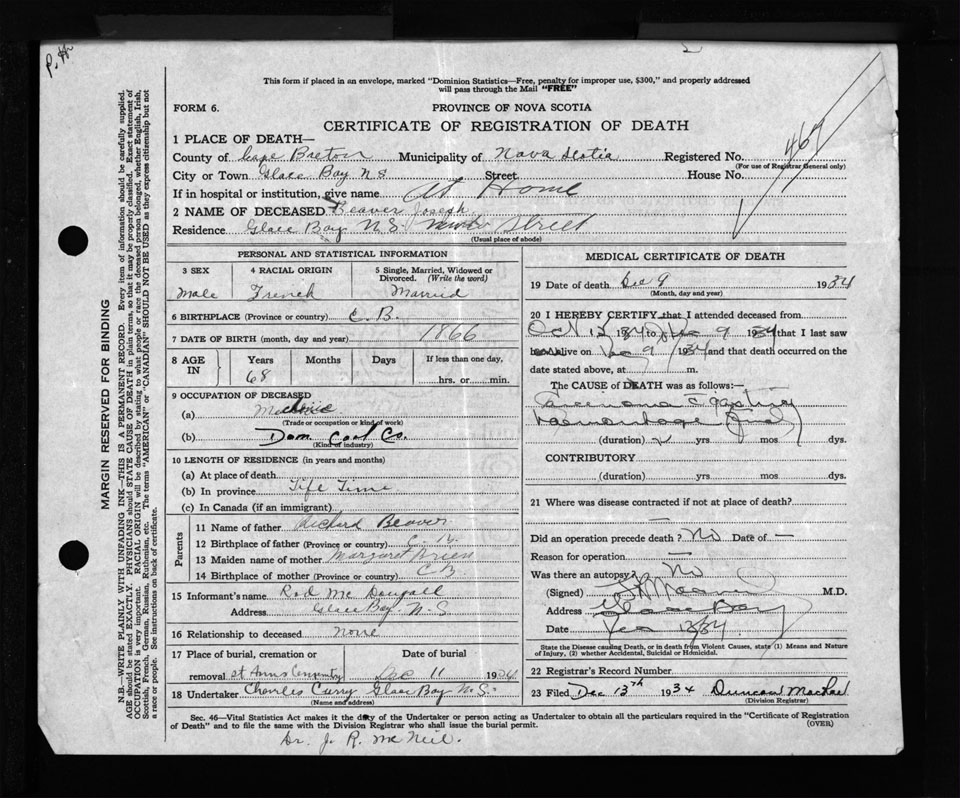 P. H
This form if placed in an envelope, marked "Dominion Statistics—Free, penalty for improper use, $300," and properly addressed
will pass through the Mail "FREE"
FORM 6.
PROVINCE OF NOVA SCOTIA
CERTIFICATE OF REGISTRATION OF DEATH
1 PLACE OF DEATH—
County of Cape Breton Municipality of Nova Scotia Registered No. 469
(For use of Registrar General only)
City or Town Glace Bay N S Street House No.
If in hospital or institution, give name At Home
2 NAME OF DECEASED Beaver Joseph
Residence Glace Bay N.S. Street
(Usual place of abode)
PERSONAL AND STATISTICAL INFORMATION
3 SEX 4 RACIAL ORIGIN 5 Single, Married, Widowed or
Divorced. (Write the word)
Male French Married
6 BIRTHPLACE (Province or country) C. B.
7 DATE OF BIRTH (month, day and year) 1866
8 AGE IN Years Months Days If less than one day,
68 hrs. or min.
9 OCCUPATION OF DECEASED
(a)
(Trade or occupation or kind of work)
(b) Dom Coal Co.
(Kind of industry)
10 LENGTH OF RESIDENCE (in years and months)
(a) At place of death
(b) In province Life Time
(c) In Canada (if an immigrant)
Parents
11 Name of father Richard Beaver
12 Birthplace of father (Province or country)
13 Maiden name of mother Margaret
14 Birthplace of mother (Province or country) C B
15 Informant's name Rod Mc Dougall
Address Glace Bay N. S.
16 Relationship to deceased none
17 Place of burial, cremation or Date of burial
removal St Anns Dec 11 1934
18 Undertaker Charles Curry Glace Bay N. S.
(Name and address)
MEDICAL CERTIFICATE OF DEATH
19 Date of death Dec 9 1934
(Month, day and year)
20 I HEREBY CERTIFY, that I attended deceased from
Oct 12 1934 to Dec 9 1934 that I last saw
h alive on Dec 9 1934 and that death occurred on the
date stated above, at m.
The CAUSE of DEATH was as follows:—
Carcinoma
haemorrhage
(duration) 2 yrs. mos. dys.
CONTRIBUTORY
(duration) yrs. mos. dys.
21 Where was disease contracted if not at place of death?
—
Did an operation precede death? No Date of —
Reason for operation —
Was there an autopsy? No
(Signed) M.D.
Address Glace Bay
Date Dec 1934
State the Disease causing Death, or in death from Violent Causes, state (1) Means and Nature
of Injury, (2) whether Accidental, Suicidal or Homicidal.
22 Registrar's Record Number
23 Filed Dec 13th 1934 Duncan
(Division Registrar)
Sec. 46—Vital Statistics Act makes it the duty of the Undertaker or person acting as Undertaker to obtain all the particulars required in the "Certificate of Registration
of Death" and to file the same with the Division Registrar who shall issue the burial permit.
(OVER)
Dr. J. R. McNeil.
MARGIN RESERVED FOR BINDING
N.B.—WRITE PLAINLY WITH UNFADING INK—THIS IS A PERMANENT RECORD. Every item of information should be carefully supplied.
AGE should be stated EXACTLY. PHYSICIANS should STATE CAUSE OF DEATH in plain terms, so that it may be properly classified. Exact statement of
OCCUPATION is very important. RACIAL ORIGIN will be described by stating to what people or race the deceased person belonged, whether English, Irish,
Scottish, French, German, Russian, Ruthenian, etc. The terms "AMERICAN" or "CANADIAN" SHOULD NOT BE USED as they express citizenship but not
a race or people. See instructions on back of certificate.